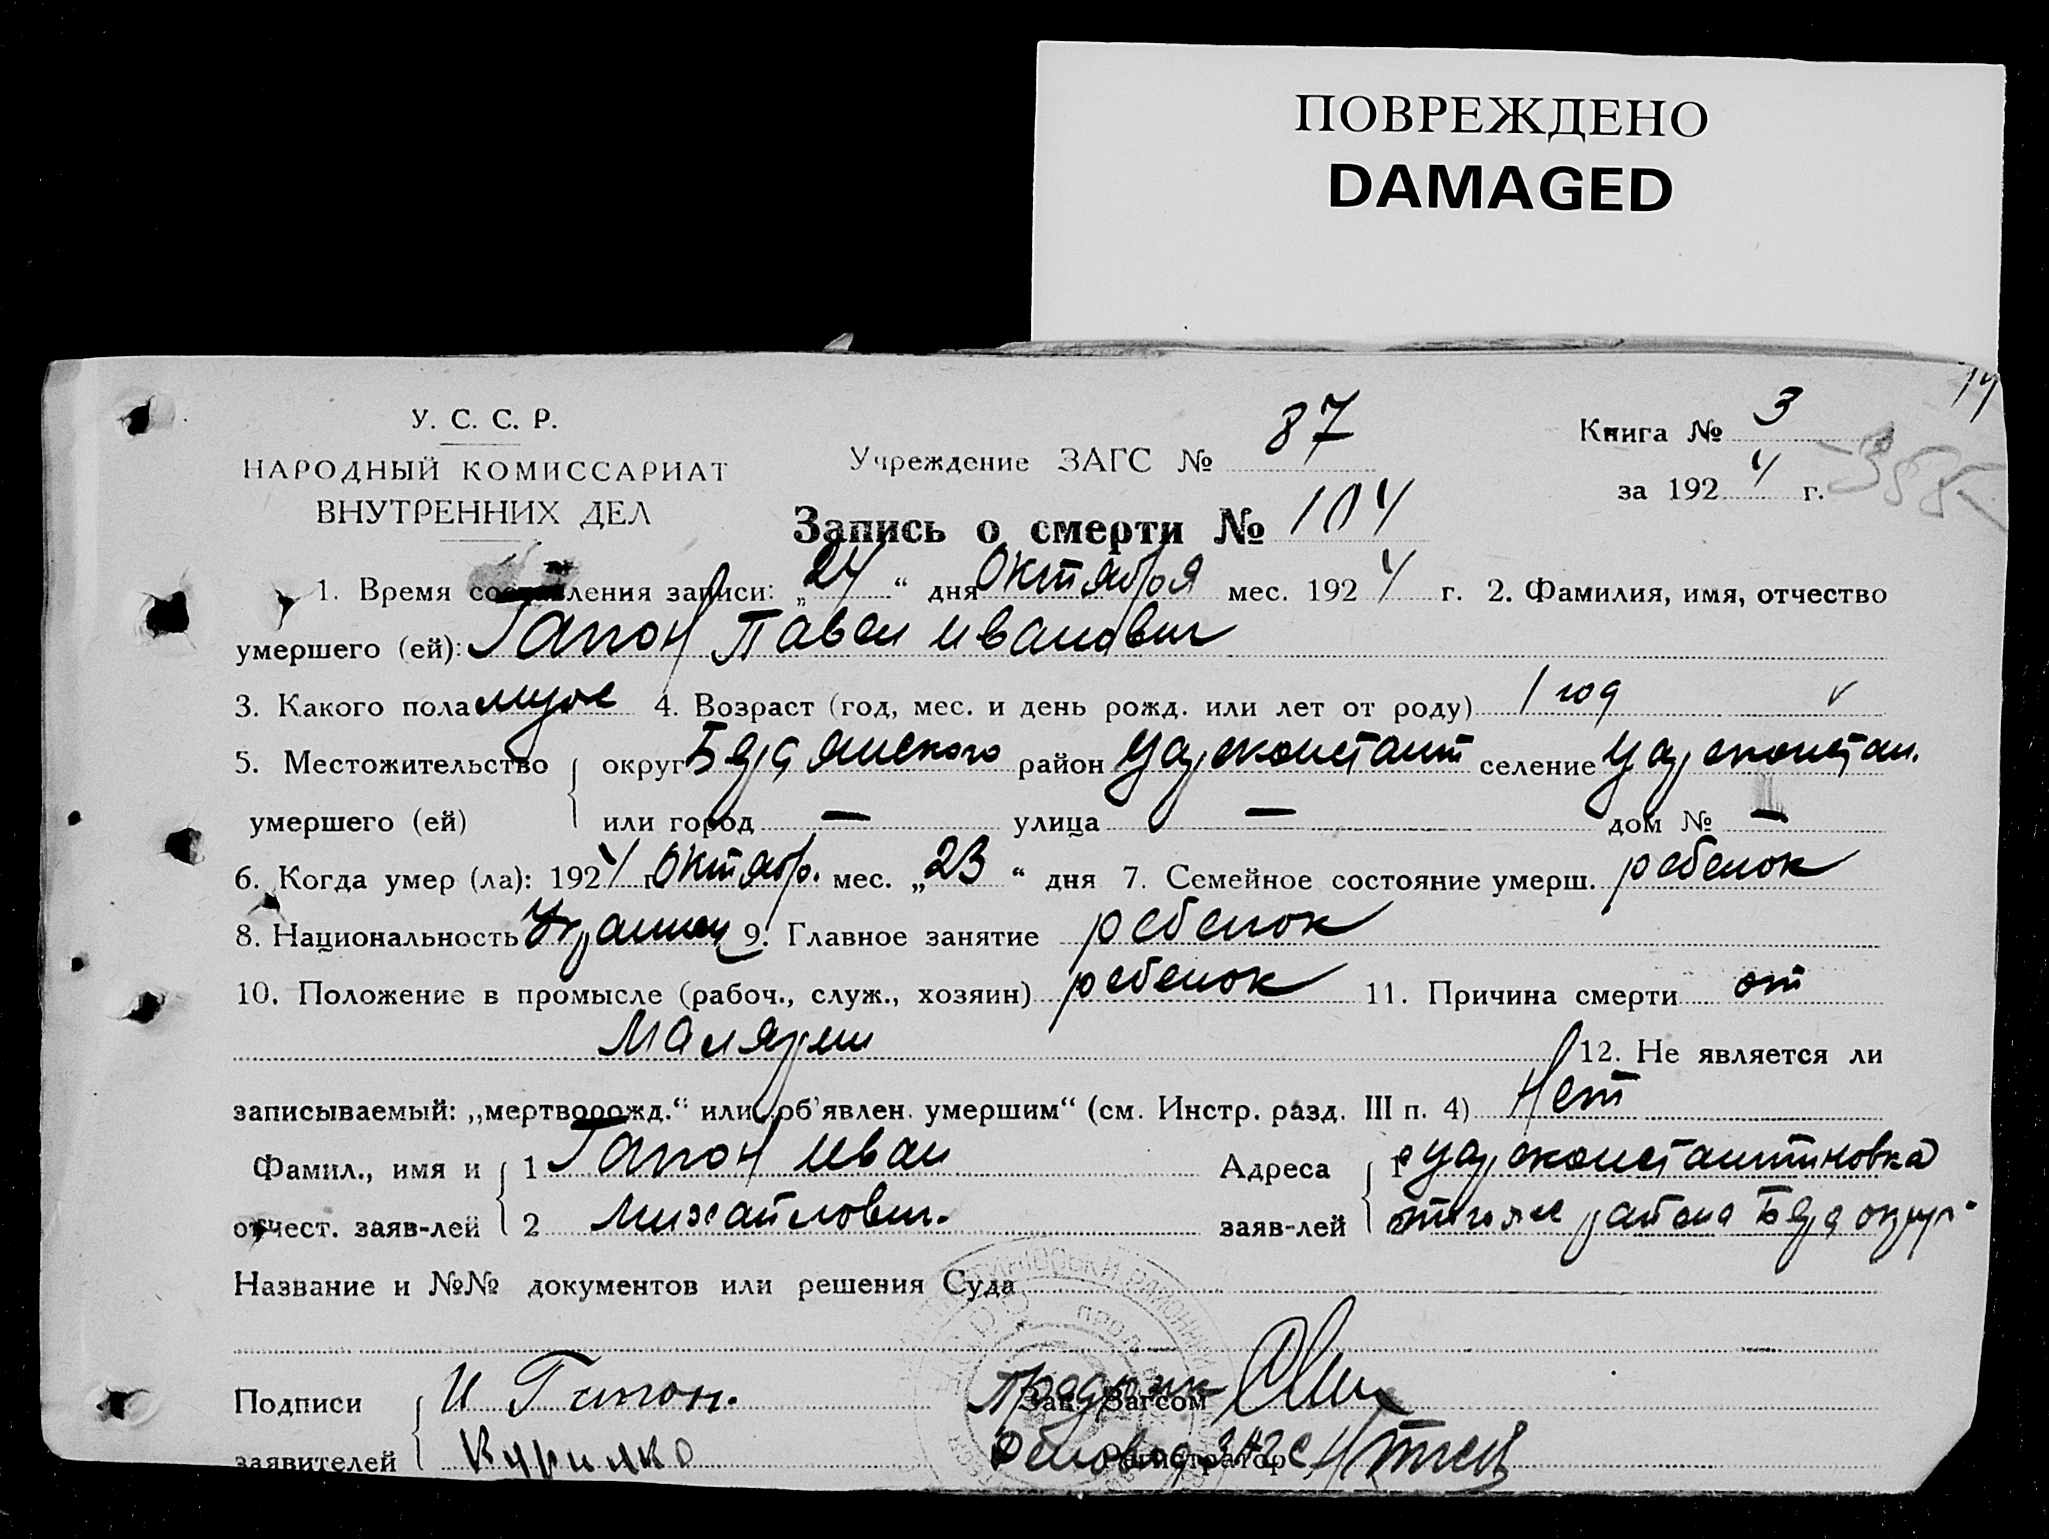 ПОВРЕЖДЕНО
DAMAGED
14
У. С. С. Р.
НАРОДНЫЙ КОМИССАРИАТ
ВНУТРЕННИХ ДЕЛ
Учреждение ЗАГС № 87
Книга № 3
за 1924 г.
Запись о смерти № 104
1. Время составления записи: „24“ дня Октября мес. 1924 г. 2. Фамилия, имя, отчество
умершего (ей): Гапон Павел Иванович
3. Какого пола муж 4. Возраст (год, мес. и день рожд. или лет от роду) 1 год
5. Местожительство округ Бердянского район Цареконстант селение Цареконстан.
умершего (ей) или город — улица — дом № —
6. Когда умер (ла): 1924 г. Октябр. мес. „23“ дня 7. Семейное состояние умерш. ребенок
8. Национальность Украинец 9. Главное занятие ребенок
10. Положение в промысле (рабоч., служ., хозяин) ребенок 11. Причина смерти от
Малярии 12. Не является ли
записываемый: „мертворожд.“ или „об'явлен. умершим“ (см. Инстр. разд. III п. 4) Нет
Фамил., имя и 1 Гапон Иван Адреса 1 с Цареконстантиновка
отчест. заяв-лей 2 Михайлович. заяв-лей 2 района Берд округ
Название и №№ документов или решения Суда
Подписи И Гапон. Зав. Загсом
заявителей Курилко Деловод ЗАГС Регистратор